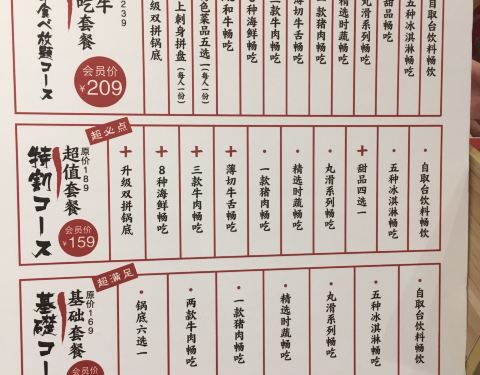 食べ放題コース
牛
吃套餐
239
会员价
¥209
级双拼锅底
上刺身拼盘(每人一份)
色菜品五选一(每人一份)
和牛畅吃
种海鲜畅吃
款牛肉畅吃
切牛舌畅吃
款猪肉畅吃
精选时蔬畅吃
丸滑系列畅吃
甜品畅吃
五种冰淇淋畅吃
自取台饮料畅饮
超必点
特割コース
超值套餐
原价189
会员价
¥159
+升级双拼锅底
+8种海鲜畅吃
+三款牛肉畅吃
+薄切牛舌畅吃
·一款猪肉畅吃
·精选时蔬畅吃
·丸滑系列畅吃
+甜品四选一
·五种冰淇淋畅吃
·自取台饮料畅饮
超满足
基礎コー
基础套餐
原价169
会员价
·锅底六选一
·两款牛肉畅吃
·一款猪肉畅吃
·精选时蔬畅吃
·丸滑系列畅吃
·五种冰淇淋畅吃
·自取台饮料畅饮